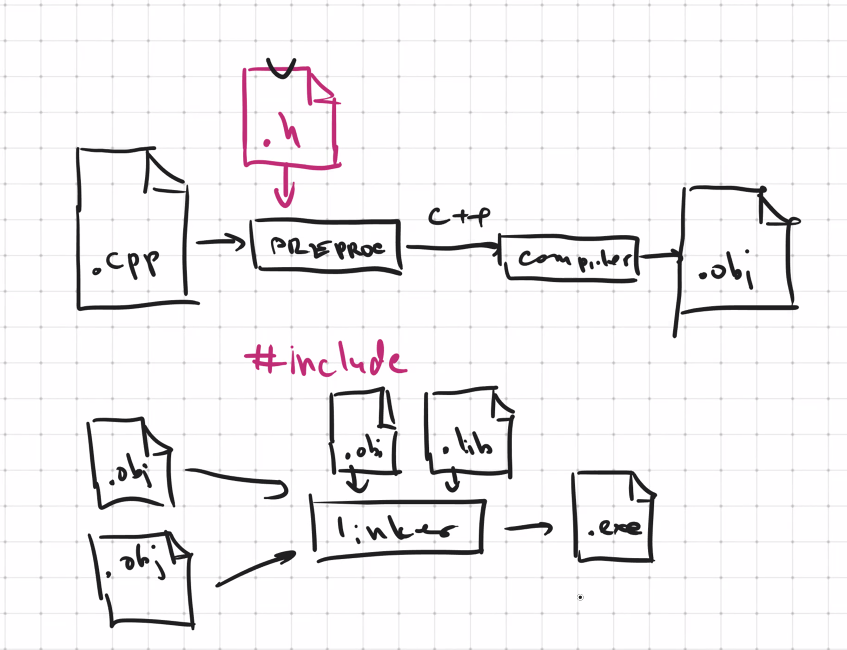 .h
.cpp
PREPROC
C++
compiler
.obj
#include
.obj
.obj
.lib
linker
.exe
.obj